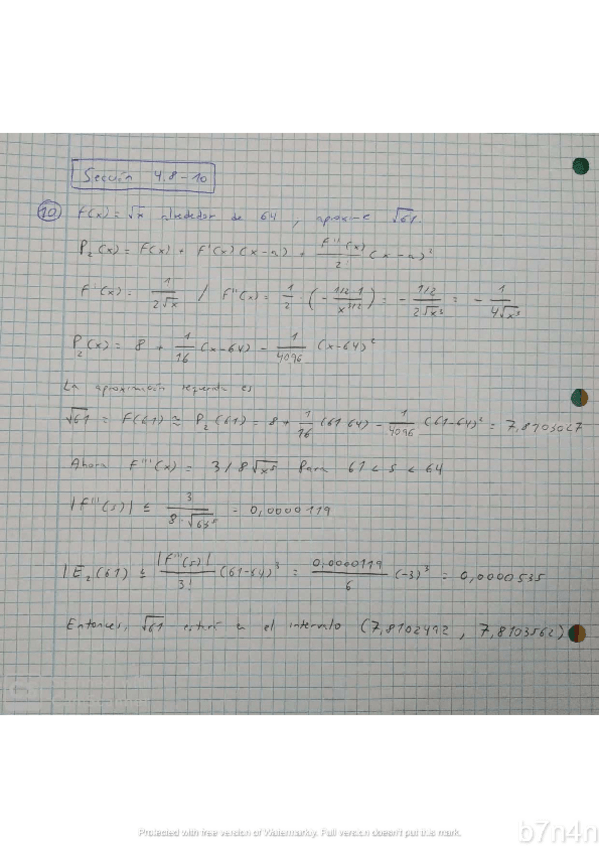 Sección 4.8-10
10 f(x) = √x alrededor de 64, aproxime √61.
P₂(x) = f(x) + f'(x)(x-a) + f''(x)/2! (x-a)²
f'(x) = 1/(2√x) / f''(x) = 1/2 · (- (1/2·1)/x^(3/2)) = - (1/2)/(2√x³) = - 1/(4√x³)
P₂(x) = 8 + 1/16 (x-64) - 1/4096 (x-64)²
La aproximación requerida es
√61 = f(61) ≅ P₂(61) = 8 + 1/16 (61-64) - 1/4096 (61-64)² = 7,8103027
Ahora f'''(x) = 3/8√x⁵ Para 61 < s < 64
|f'''(s)| ≤ = 0,0000119
|E₂(61) ≤ |f'''(s)|/3! (61-64)³ = 0,0000119/6 (-3)³ = 0,0000535
Entonces, √61 está en el intervalo (7,8102492, 7,8103562)
Protected with free version of Watermarkly. Full version doesn't put this mark.
b7n4n